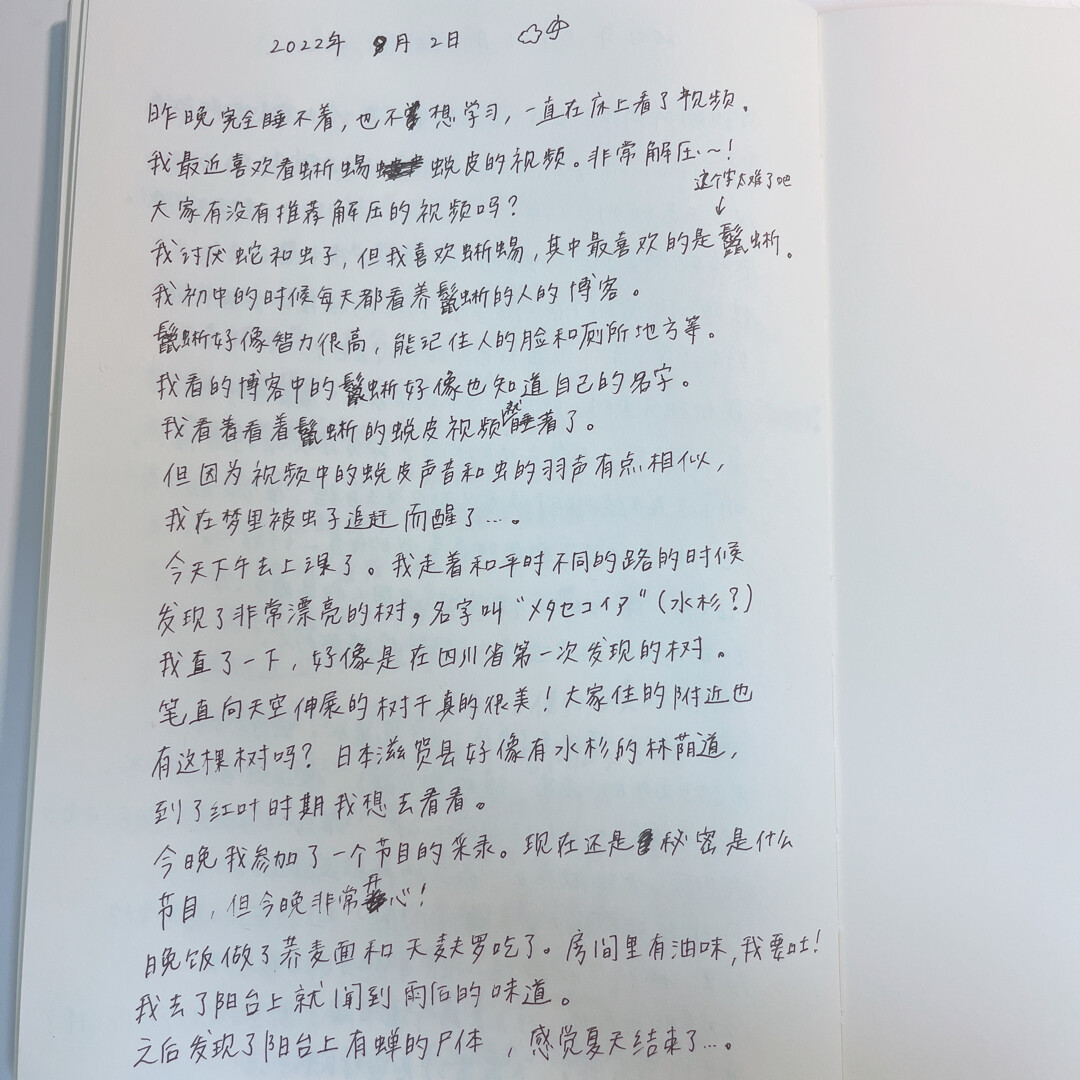 2022年 9月 2日
昨晚完全睡不着,也不想学习,一直在床上看了视频。
我最近喜欢看蜥蜴蜕皮的视频。非常解压~!
这个字太难了吧
↓
大家有没有推荐解压的视频吗?
我讨厌蛇和虫子,但我喜欢蜥蜴,其中最喜欢的是鬣蜥。
我初中的时候每天都看养鬣蜥的人的博客。
鬣蜥好像智力很高,能记住人的脸和厕所地方等。
我看的博客中的鬣蜥好像也知道自己的名字。
我看着看着鬣蜥的蜕皮视频就睡着了。
但因为视频中的蜕皮声音和虫的羽声有点相似,
我在梦里被虫子追赶而醒了…。
今天下午去上课了。我走着和平时不同的路的时候
发现了非常漂亮的树,名字叫“メタセコイア“(水杉?)
我查了一下,好像是在四川省第一次发现的树。
笔直向天空伸展的树干真的很美!大家住的附近也
有这棵树吗?日本滋贺县好像有水杉的林荫道,
到了红叶时期我想去看看。
今晚我参加了一个节目的采录。现在还是秘密是什么
节目,但今晚非常开心!
晚饭做了荞麦面和天麸罗吃了。房间里有油味,我要吐!
我去了阳台上就闻到雨后的味道。
之后发现了阳台上有蝉的尸体,感觉夏天结束了…。